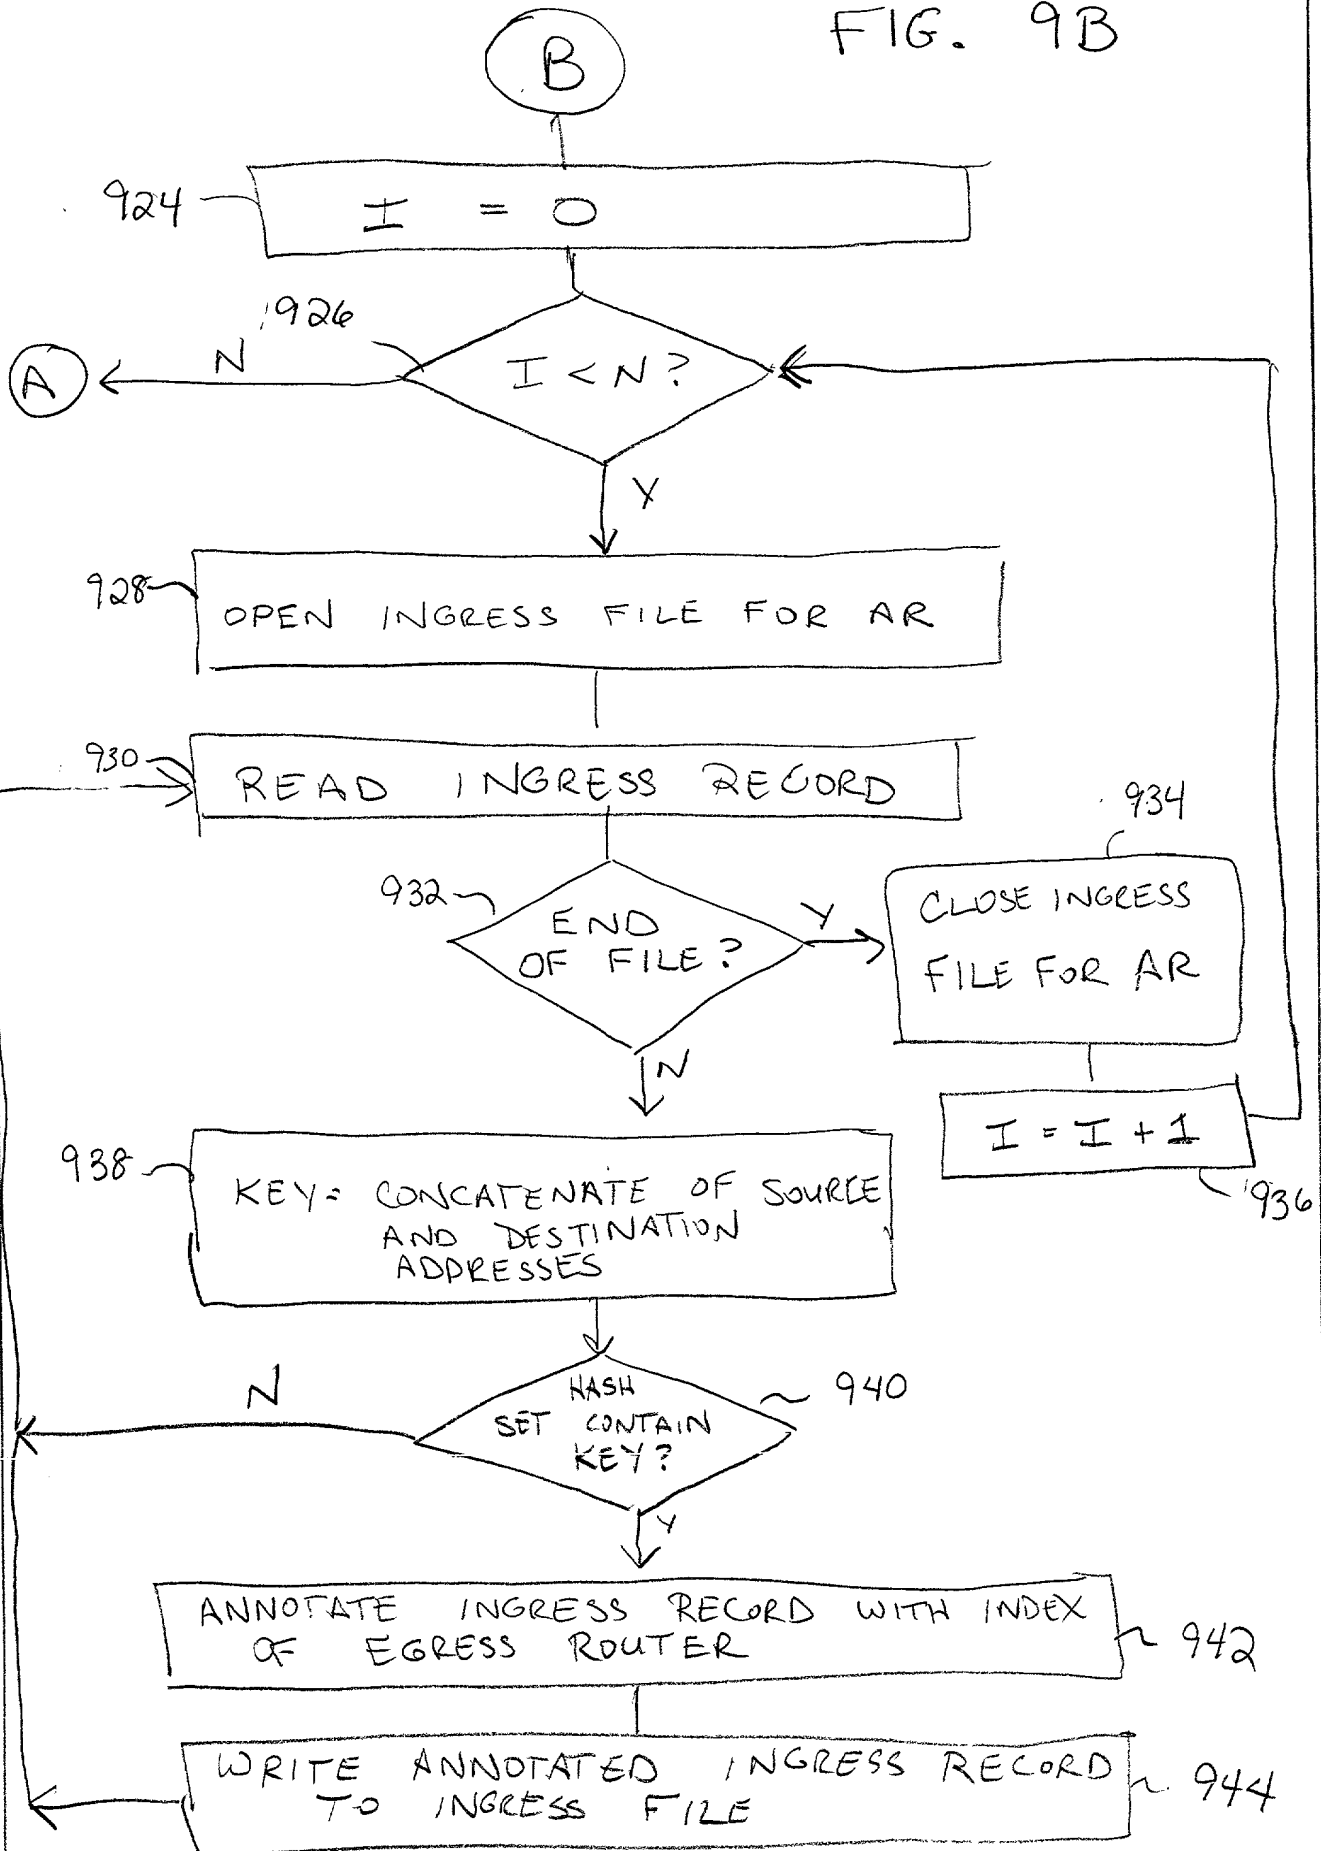 FIG. 9B
B
924
I = 0
926
I < N?
N
A
Y
928
OPEN INGRESS FILE FOR AR
930
READ INGRESS RECORD
934
932
END
OF FILE?
Y
CLOSE INGRESS
FILE FOR AR
N
I = I + 1
936
938
KEY= CONCATENATE OF SOURCE
AND DESTINATION
ADDRESSES
N
HASH
SET CONTAIN
KEY?
940
Y
ANNOTATE INGRESS RECORD WITH INDEX
OF EGRESS ROUTER
942
WRITE ANNOTATED INGRESS RECORD
TO INGRESS FILE
944